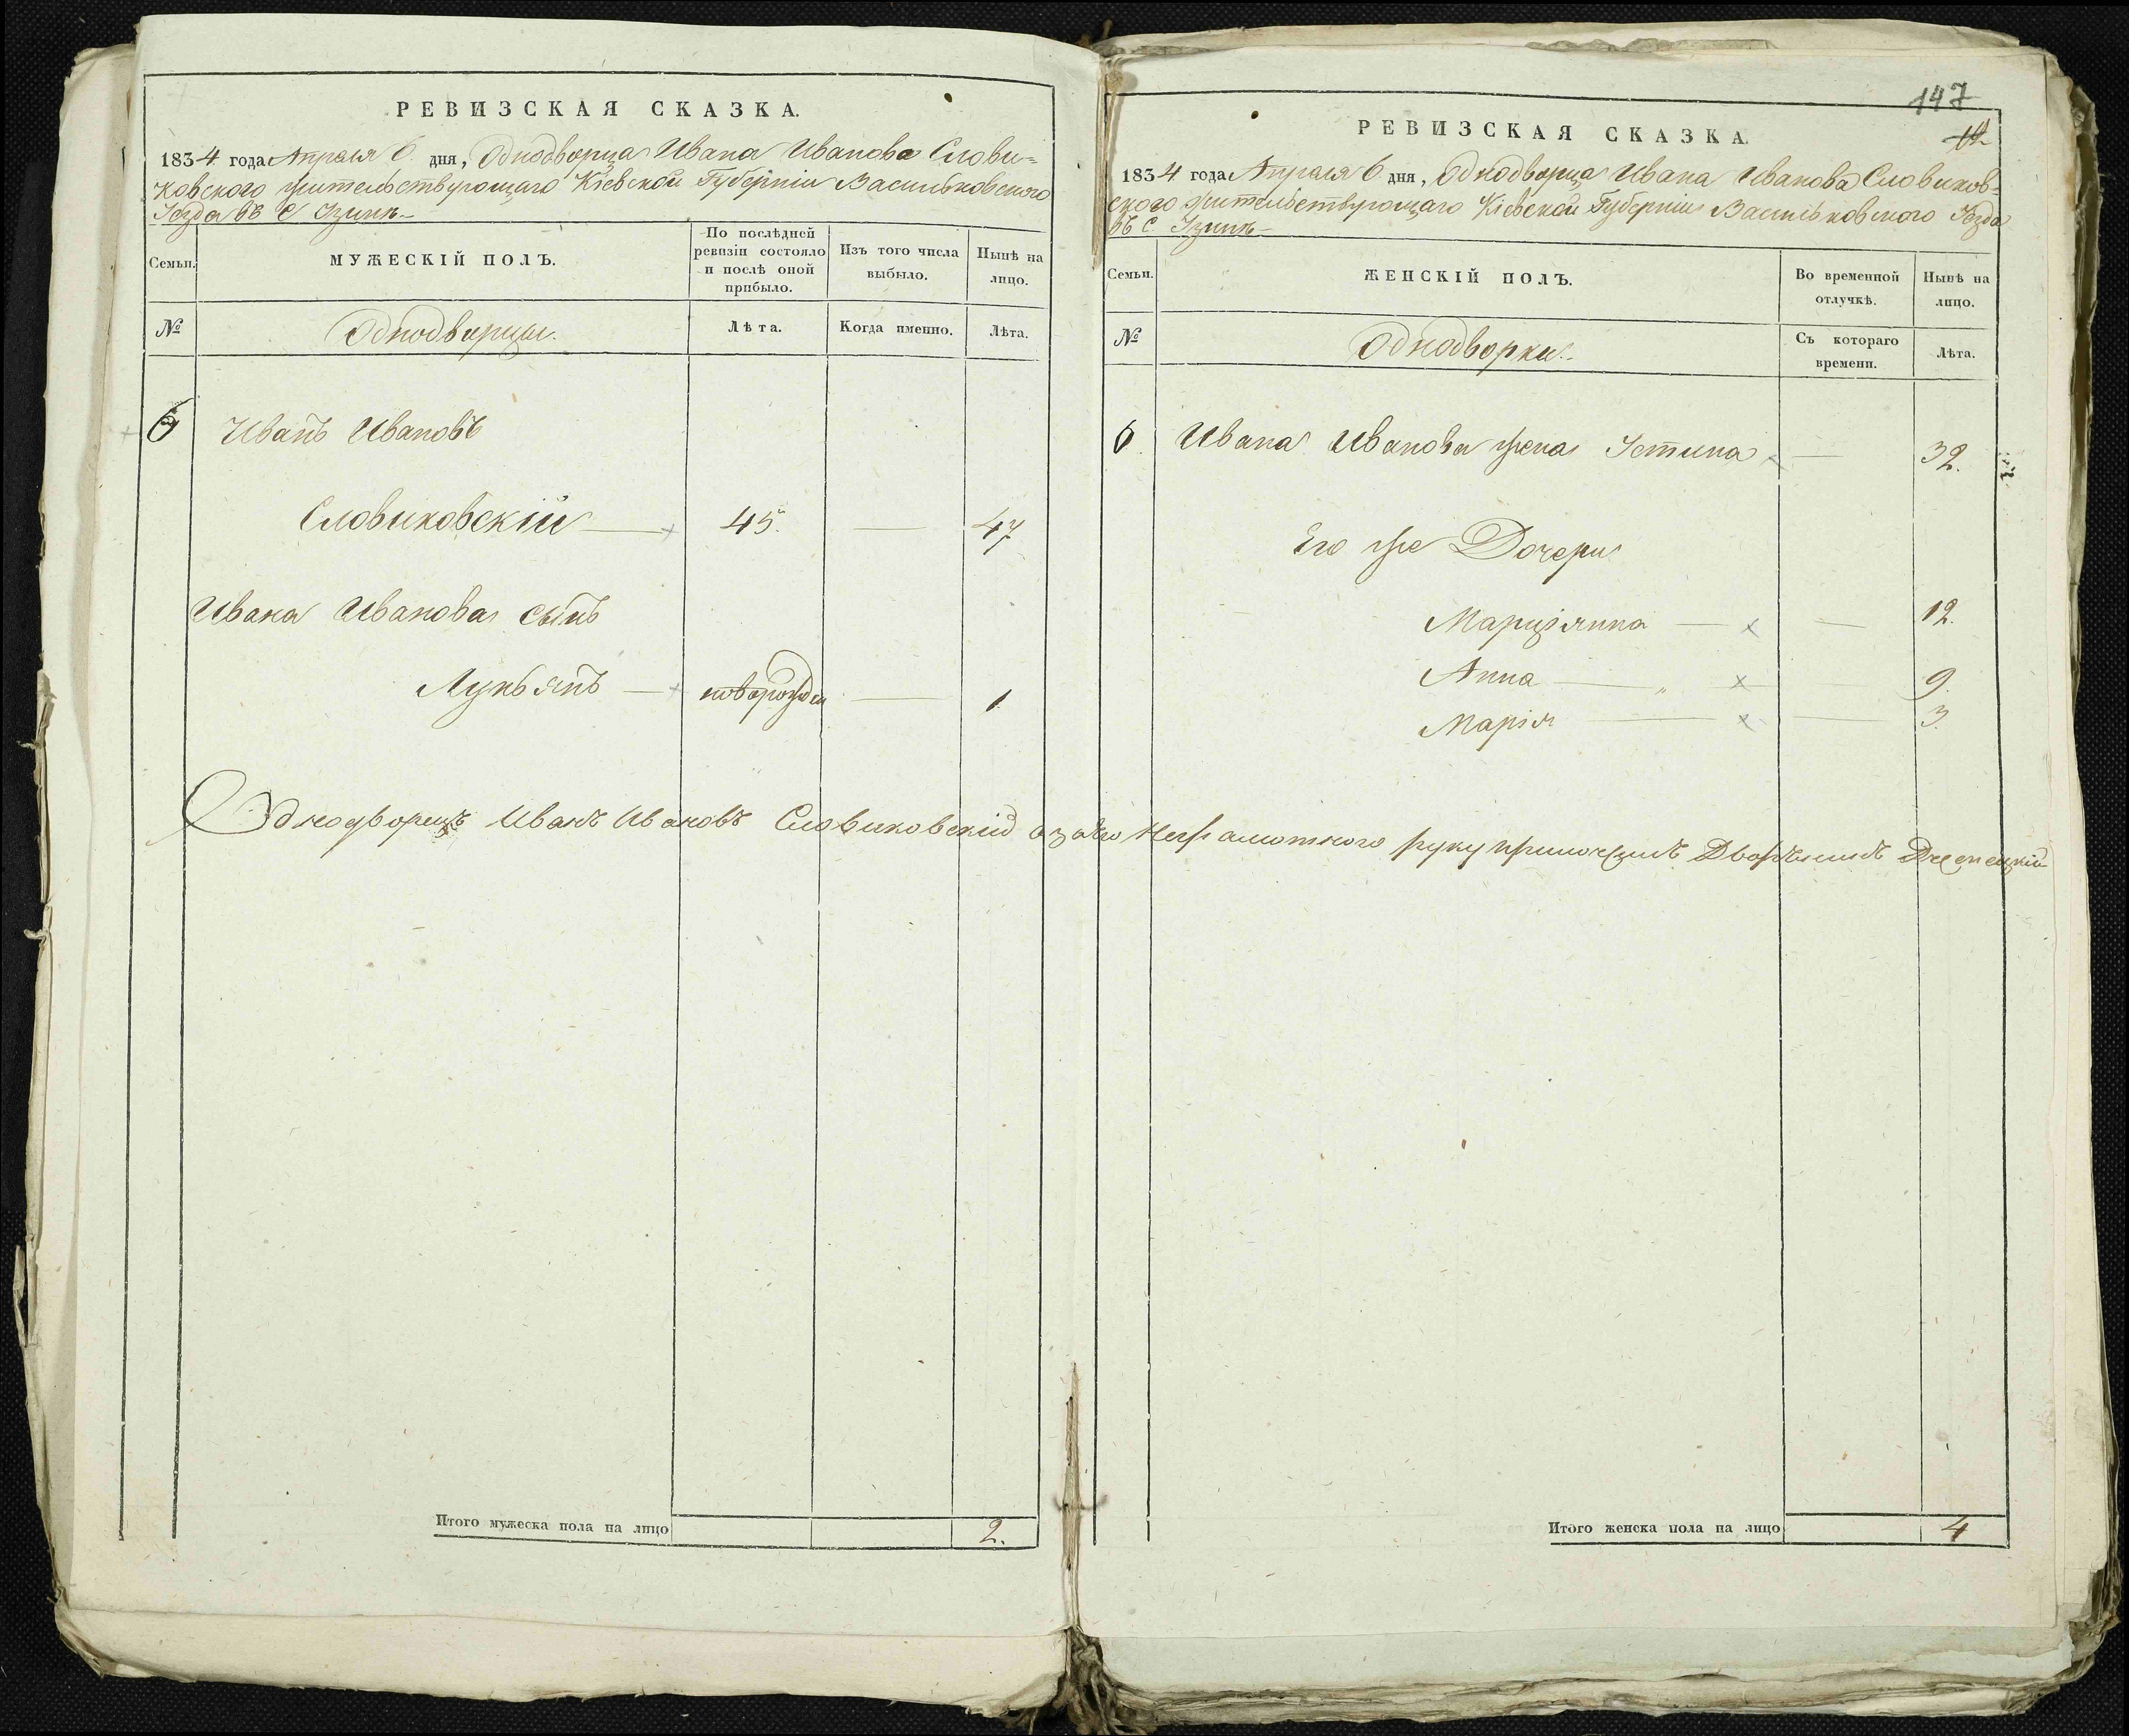 РЕВИЗСКАЯ СКАЗКА.
1834 года Апреля 6 дня, Однодворца Ивана Иванова Слови=
ковского жительствующаго Кіевской Губерніи Васильковского
Уезда въ С
Семьи.
МУЖЕСКІЙ ПОЛЪ.
По послѣдней ревизіи состояло и послѣ оной прибыло.
Изъ того числа выбыло.
Нынѣ на лицо.
№
Однодворцы.
Лѣта.
Когда именно.
Лѣта.
6 Иванъ Ивановъ
Словиковскій — 45. — 47
Ивана Иванова сынъ
Лукьянъ — новорожден — 1
Итого мужеска пола на лицо 2.
147
РЕВИЗСКАЯ СКАЗКА.
1834 года Апреля 6 дня, Однодворца Ивана Иванова Словиков-
ского жительствующаго Кіевской Губерніи Васильковского Уезда
въ С.
Семьи.
ЖЕНСКІЙ ПОЛЪ.
Во временной отлучкѣ.
Нынѣ на лицо.
№
Однодворки.
Съ котораго времени.
Лѣта.
6 Ивана Иванова жена Устина — 32.
Его же Дочери
Марціянна — — 12.
Анна — — 9.
Марія — — 3.
Однодворецъ Иванъ Ивановъ Словиковскій а за его неграмотного руку приложилъ Дворянинъ
Итого женска пола на лицо 4